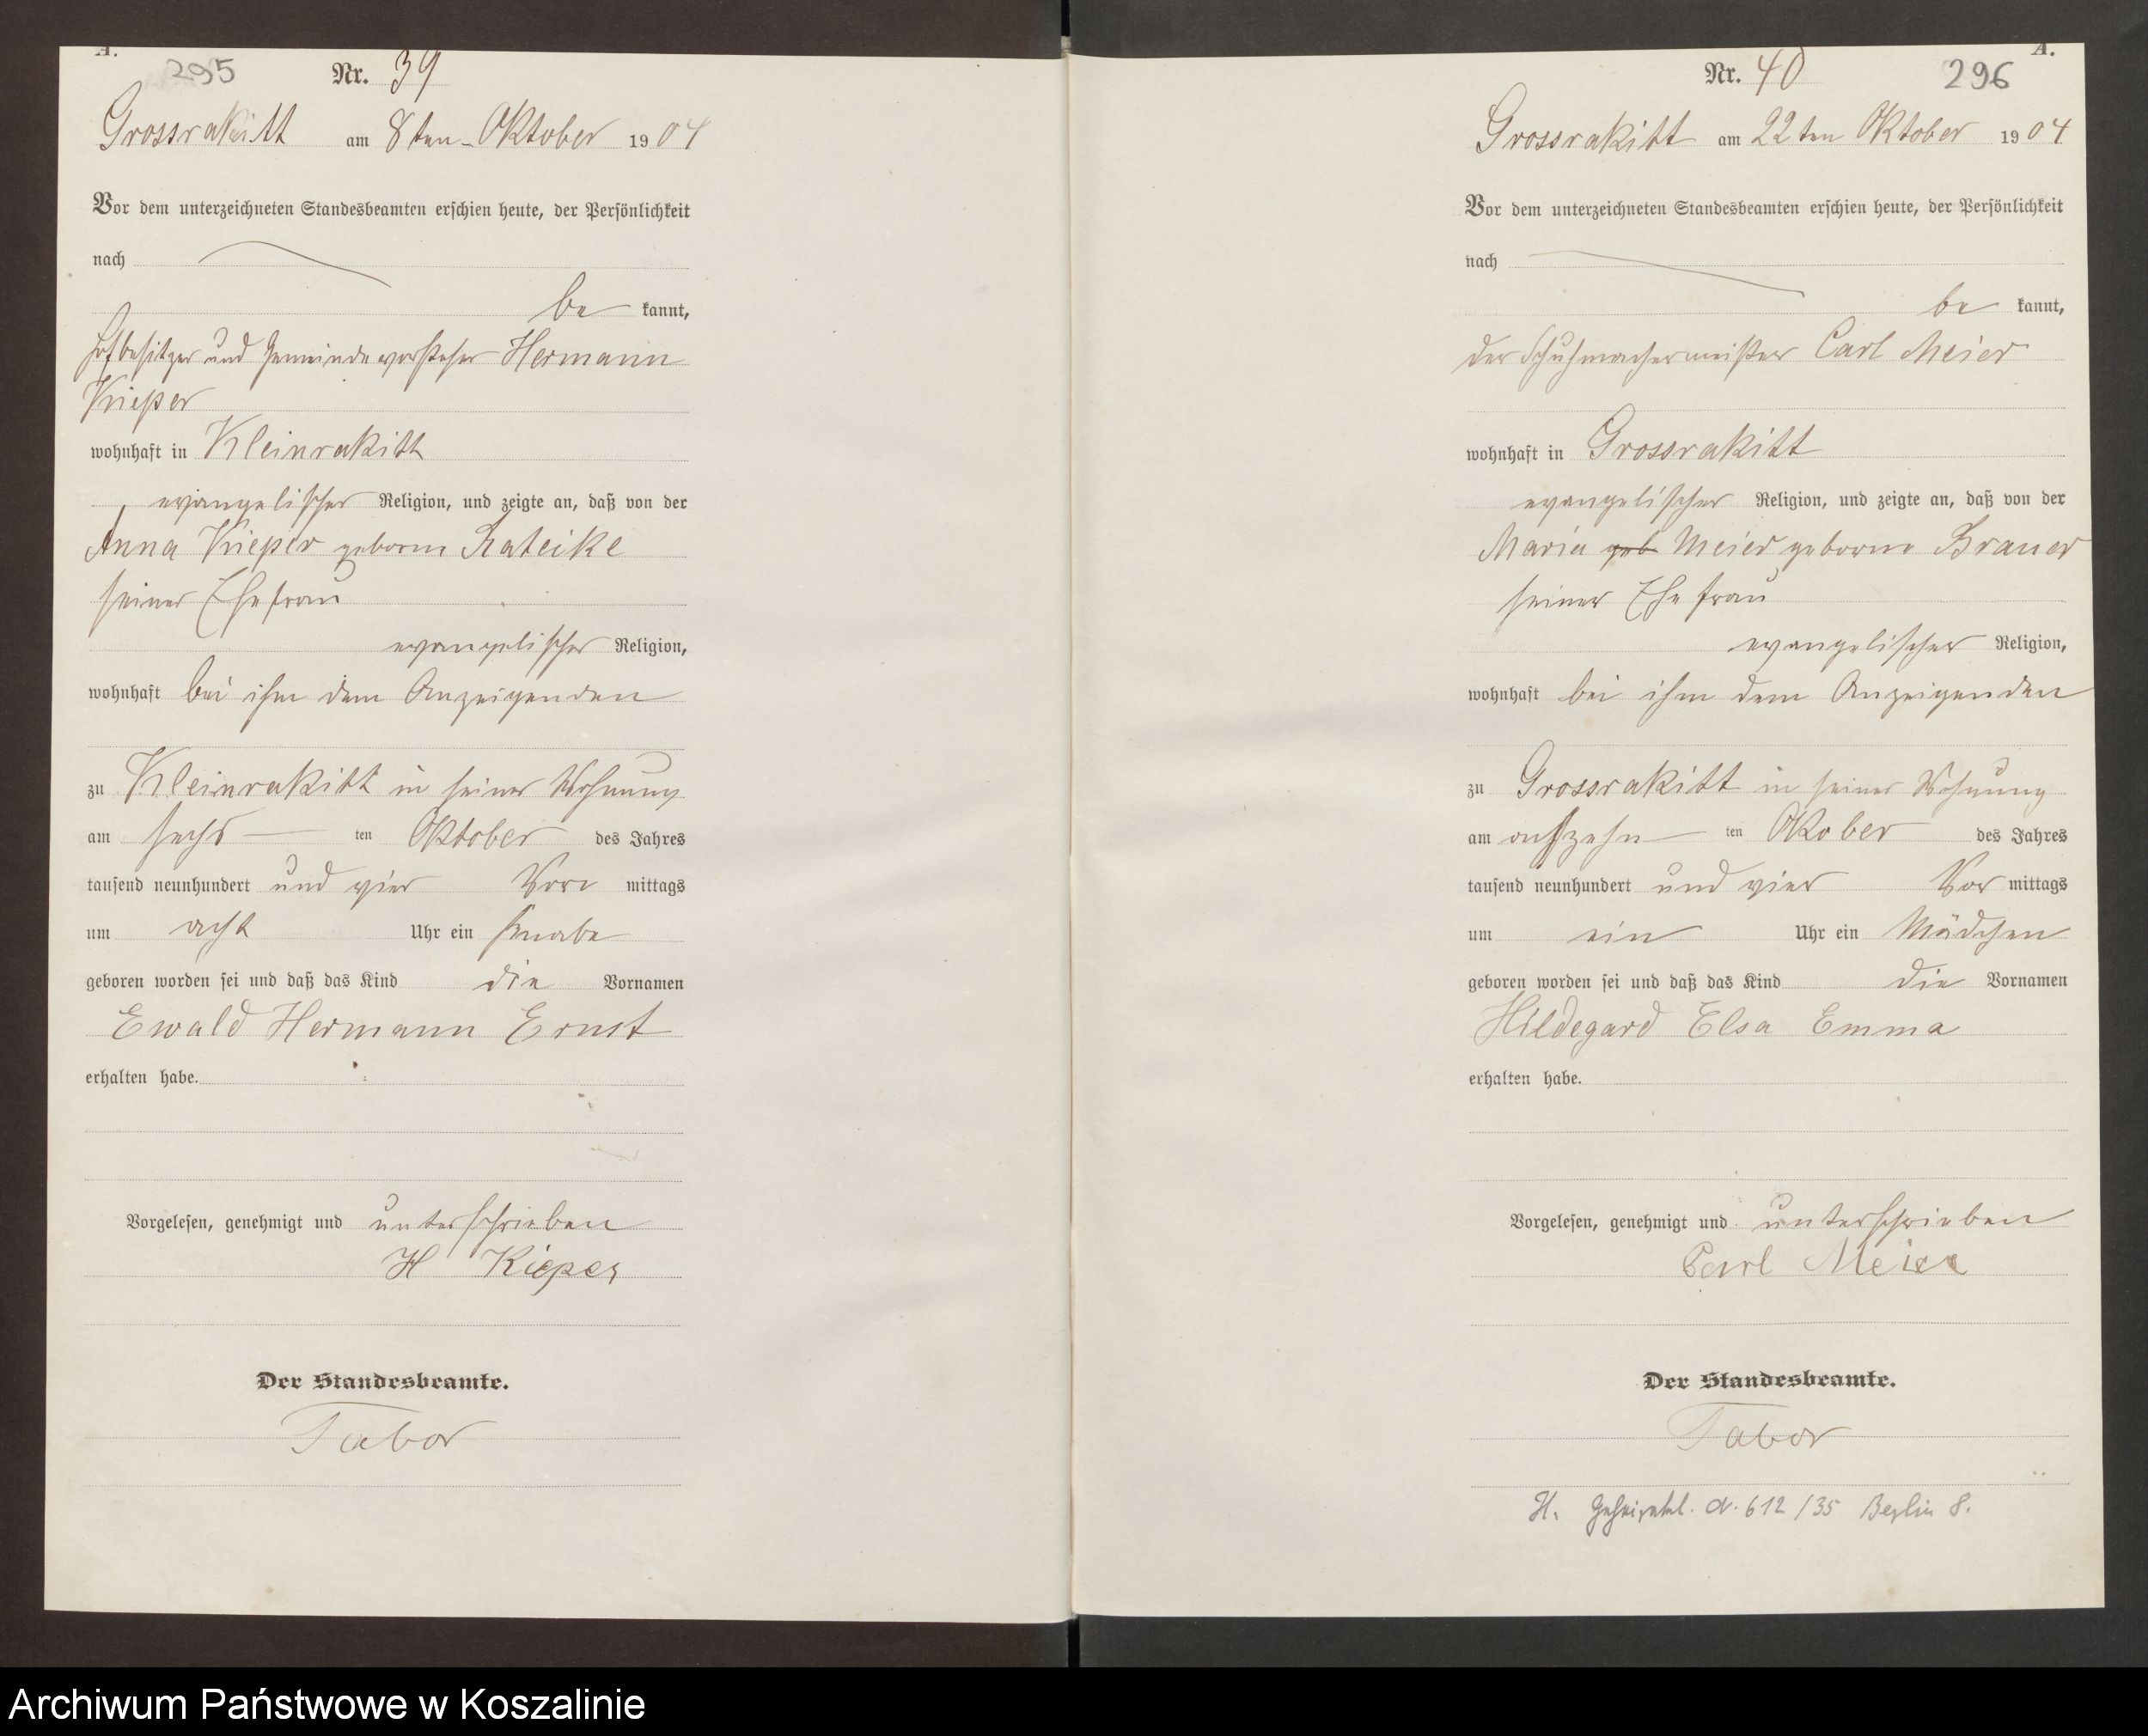 A.
295
Nr. 39
Grossrakitt am 8ten Oktober 1904
Vor dem unterzeichneten Standesbeamten erschien heute, der Persönlichkeit
nach
be kannt,
Hofbesitzer und Gemeindevorsteher Hermann
Kieper
wohnhaft in Kleinrakitt
evangelischer Religion, und zeigte an, daß von der
Anna Kieper geborne Rateike
seiner Ehefrau
evangelischer Religion,
wohnhaft bei ihm dem Anzeigenden
zu Kleinrakitt in seiner Wohnung
am sechs ten Oktober des Jahres
tausend neunhundert und vier Vor mittags
um acht Uhr ein Knabe
geboren worden sei und daß das Kind die Vornamen
Ewald Hermann Ernst
erhalten habe.
Vorgelesen, genehmigt und unterschrieben
H Kieper
Der Standesbeamte.
Tabor
A.
Nr. 40
296
Grossrakitt am 22ten Oktober 1904
Vor dem unterzeichneten Standesbeamten erschien heute, der Persönlichkeit
nach
be kannt,
der Schuhmachermeister Carl Meier
wohnhaft in Grossrakitt
evangelischer Religion, und zeigte an, daß von der
Maria geb Meier geborne Brauer
seiner Ehefrau
evangelischer Religion,
wohnhaft bei ihm dem Anzeigenden
zu Grossrakitt in seiner Wohnung
am achtzehn ten Okober des Jahres
tausend neunhundert und vier Vor mittags
um ein Uhr ein Mädchen
geboren worden sei und daß das Kind die Vornamen
Hildegard Elsa Emma
erhalten habe.
Vorgelesen, genehmigt und unterschrieben
Carl Meier
Der Standesbeamte.
Tabor
H. 612/35 Berlin 8.
Archiwum Państwowe w Koszalinie